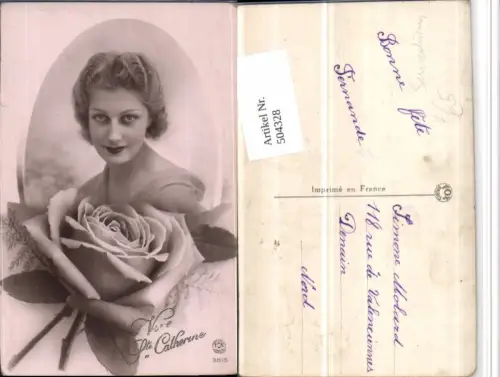 Vive
Ste Catherine
Artikel Nr.
504328
Bonne fête
Fernande
Imprimé en France
Simone Mobard
118 rue de Valenciennes
Denain
Nord